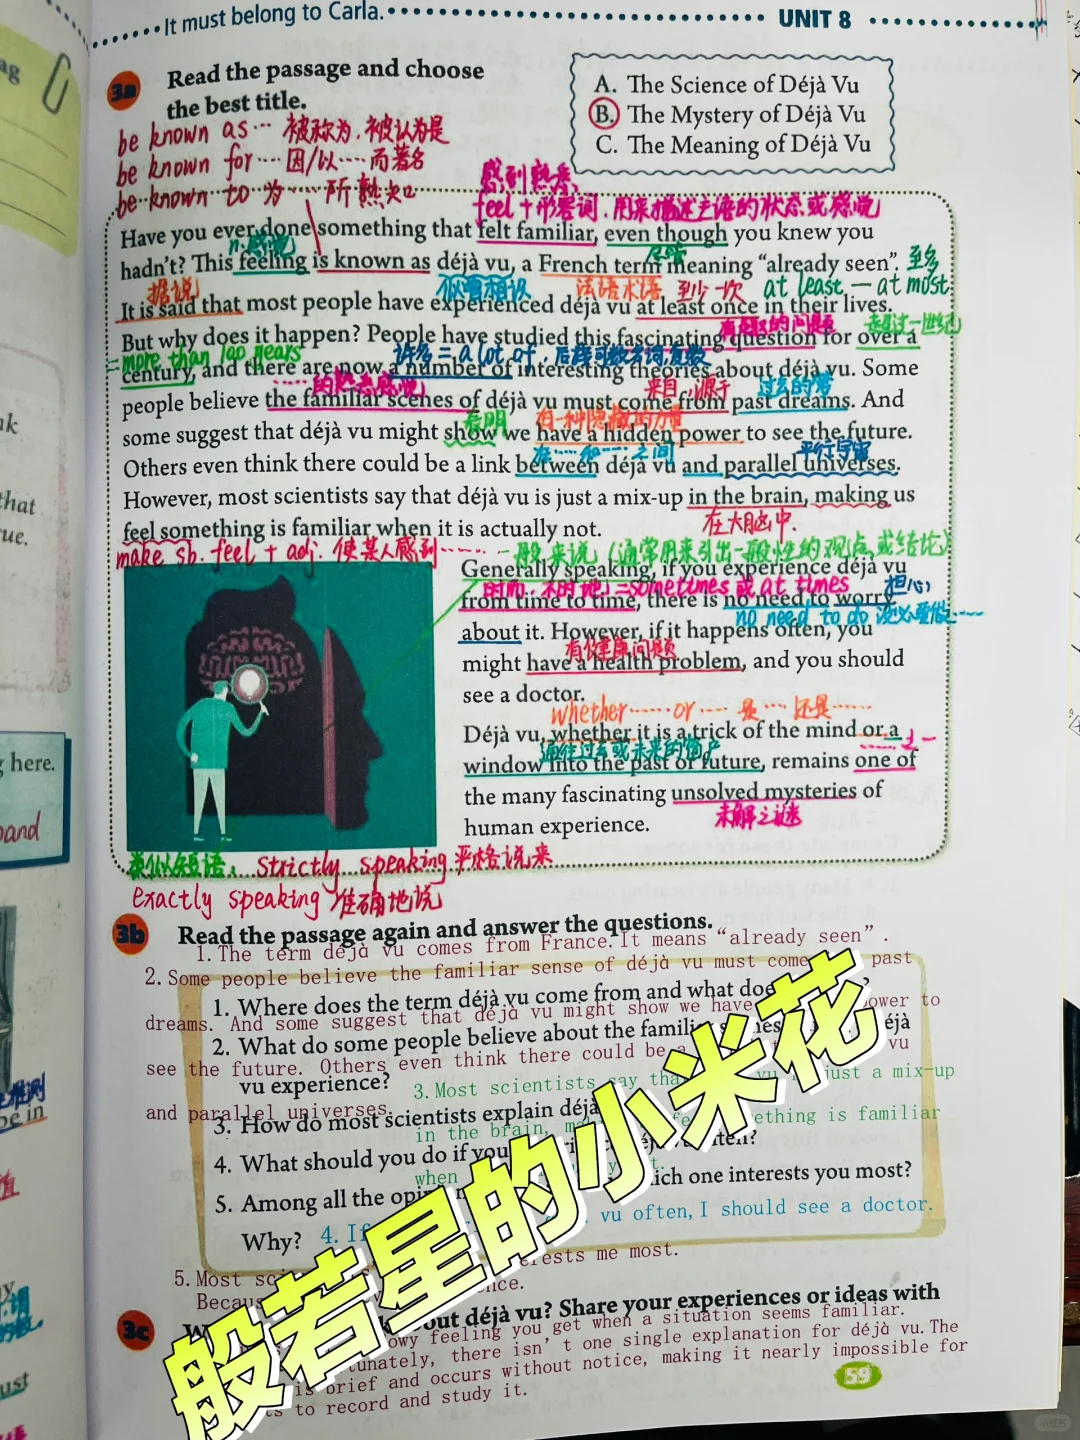 It must belong to Carla.
UNIT 8
3a Read the passage and choose
the best title.
A. The Science of Déjà Vu
B. The Mystery of Déjà Vu
C. The Meaning of Déjà Vu
be known as… 被称为,被认为是
be known for… 因/以……而著名
be known to 为……所熟知
感到熟悉
feel+形容词.用来描述主语的状态或感觉
Have you ever done something that felt familiar, even though you knew you
n.感觉
尽管
hadn't? This feeling is known as déjà vu, a French term meaning “already seen”.
至多
据说
似曾相识
法语术语
至少一次
at least — at most
It is said that most people have experienced déjà vu at least once in their lives.
超过一世纪
But why does it happen? People have studied this fascinating question for over a
=more than 100 years
许多=a lot of,后接可数名词复数
century, and there are now a number of interesting theories about déjà vu. Some
……的熟悉感觉
来自,源于
过去的梦
people believe the familiar scenes of déjà vu must come from past dreams. And
表明
有一种隐藏的力量
some suggest that déjà vu might show we have a hidden power to see the future.
在……和……之间
平行宇宙
Others even think there could be a link between déjà vu and parallel universes.
However, most scientists say that déjà vu is just a mix-up in the brain, making us
在大脑中.
feel something is familiar when it is actually not.
make sb. feel + adj. 使某人感到……
一般来说(通常用来引出一般性的观点或结论)
Generally speaking, if you experience déjà vu
时而,不时地=sometimes 或 at times
担心
from time to time, there is no need to worry
no need to do 没必要做……
about it. However, if it happens often, you
有健康问题
might have a health problem, and you should
see a doctor.
whether……or…… 是…还是……
Déjà vu, whether it is a trick of the mind or a
通往过去或未来的窗户
……之一
window into the past or future, remains one of
the many fascinating unsolved mysteries of
未解之谜
human experience.
类似短语: Strictly speaking 严格说来
exactly speaking 准确地说
3b Read the passage again and answer the questions.
1. The term déjà vu comes from France. It means “already seen”.
2. Some people believe the familiar sense of déjà vu must come past
1. Where does the term déjà vu come from and what doe
dreams. And some suggest that déjà vu might show we have power to
2. What do some people believe about the famili
éjà
see the future. Others even think there could be a vu
vu experience?
3. Most scientists say tha vu just a mix-up
and parallel universes.
3. How do most scientists explain déjà
in the brain, ething is familiar
4. What should you do if you often?
when
5. Among all the opi ich one interests you most?
Why?
4. If vu often, I should see a doctor.
5. Most sci erests me most.
Becaus nce.
3c out déjà vu? Share your experiences or ideas with
owy feeling you get when a situation seems familiar.
unately, there isn't one single explanation for déjà vu. The
is brief and occurs without notice, making it nearly impossible for
ts to record and study it.
59
般若星的小米花
ag
that
ue.
here.
band
be in
ust
小红书